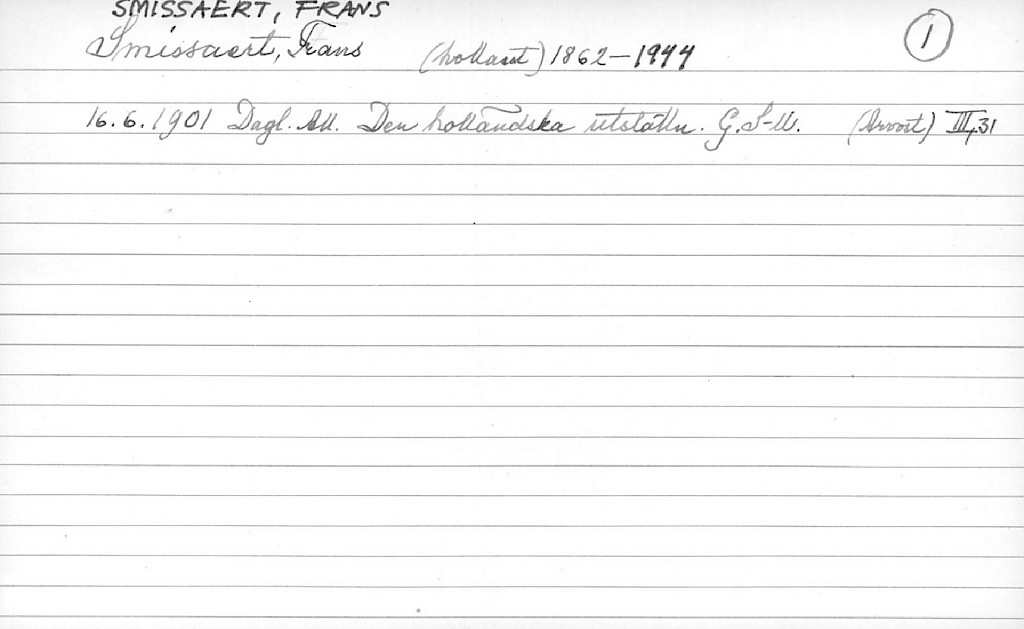 SMISSAERT, FRANS
Smissaert, Frans (hollant) 1862–1944 1
16.6.1901 Dagl. All. Den holländska utställn. G. S-ll. (Arvost) III,31